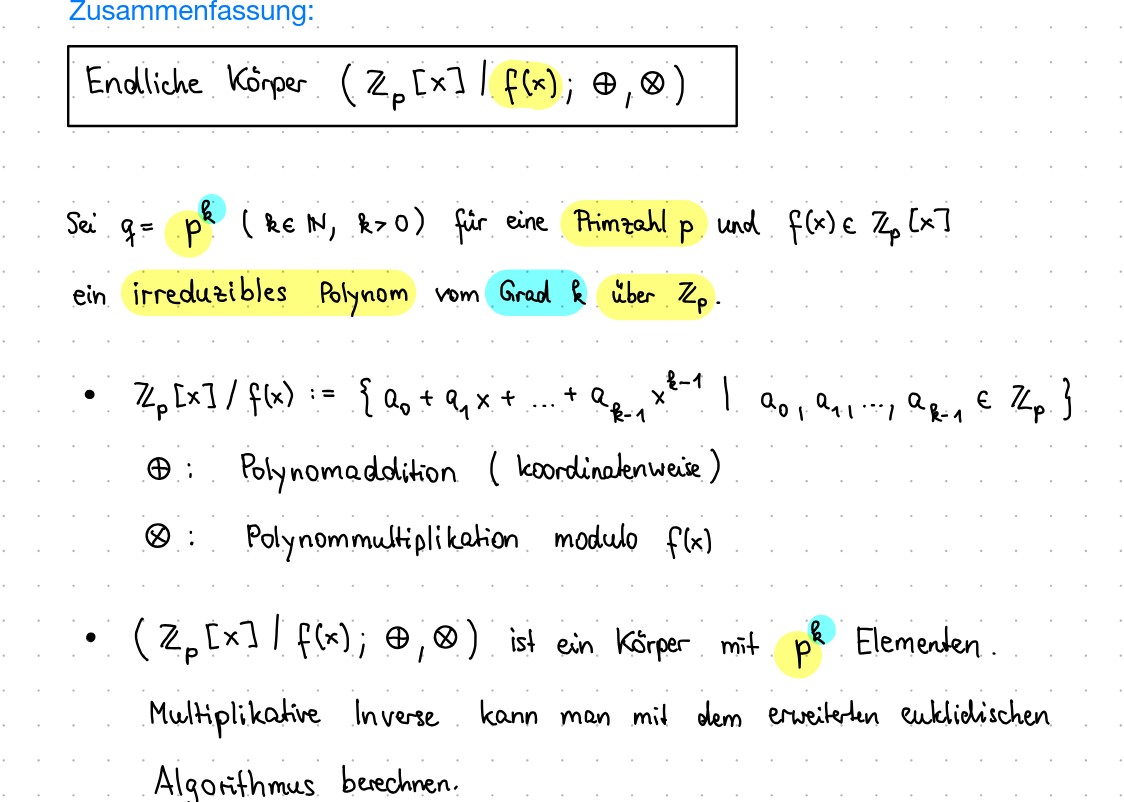 Zusammenfassung:
Endliche Körper (ℤₚ[x] | f(x); ⊕, ⊗)
Sei q = pᵏ (k ∈ ℕ, k > 0) für eine Primzahl p und f(x) ∈ ℤₚ[x]
ein irreduzibles Polynom vom Grad k über ℤₚ.
• ℤₚ[x] / f(x) := { a₀ + a₁x + ... + aₖ₋₁ xᵏ⁻¹ | a₀, a₁, ..., aₖ₋₁ ∈ ℤₚ }
⊕ : Polynomaddition (koordinatenweise)
⊗ : Polynommultiplikation modulo f(x)
• (ℤₚ[x] | f(x); ⊕, ⊗) ist ein Körper mit pᵏ Elementen.
Multiplikative Inverse kann man mit dem erweiterten euklidischen
Algorithmus berechnen.